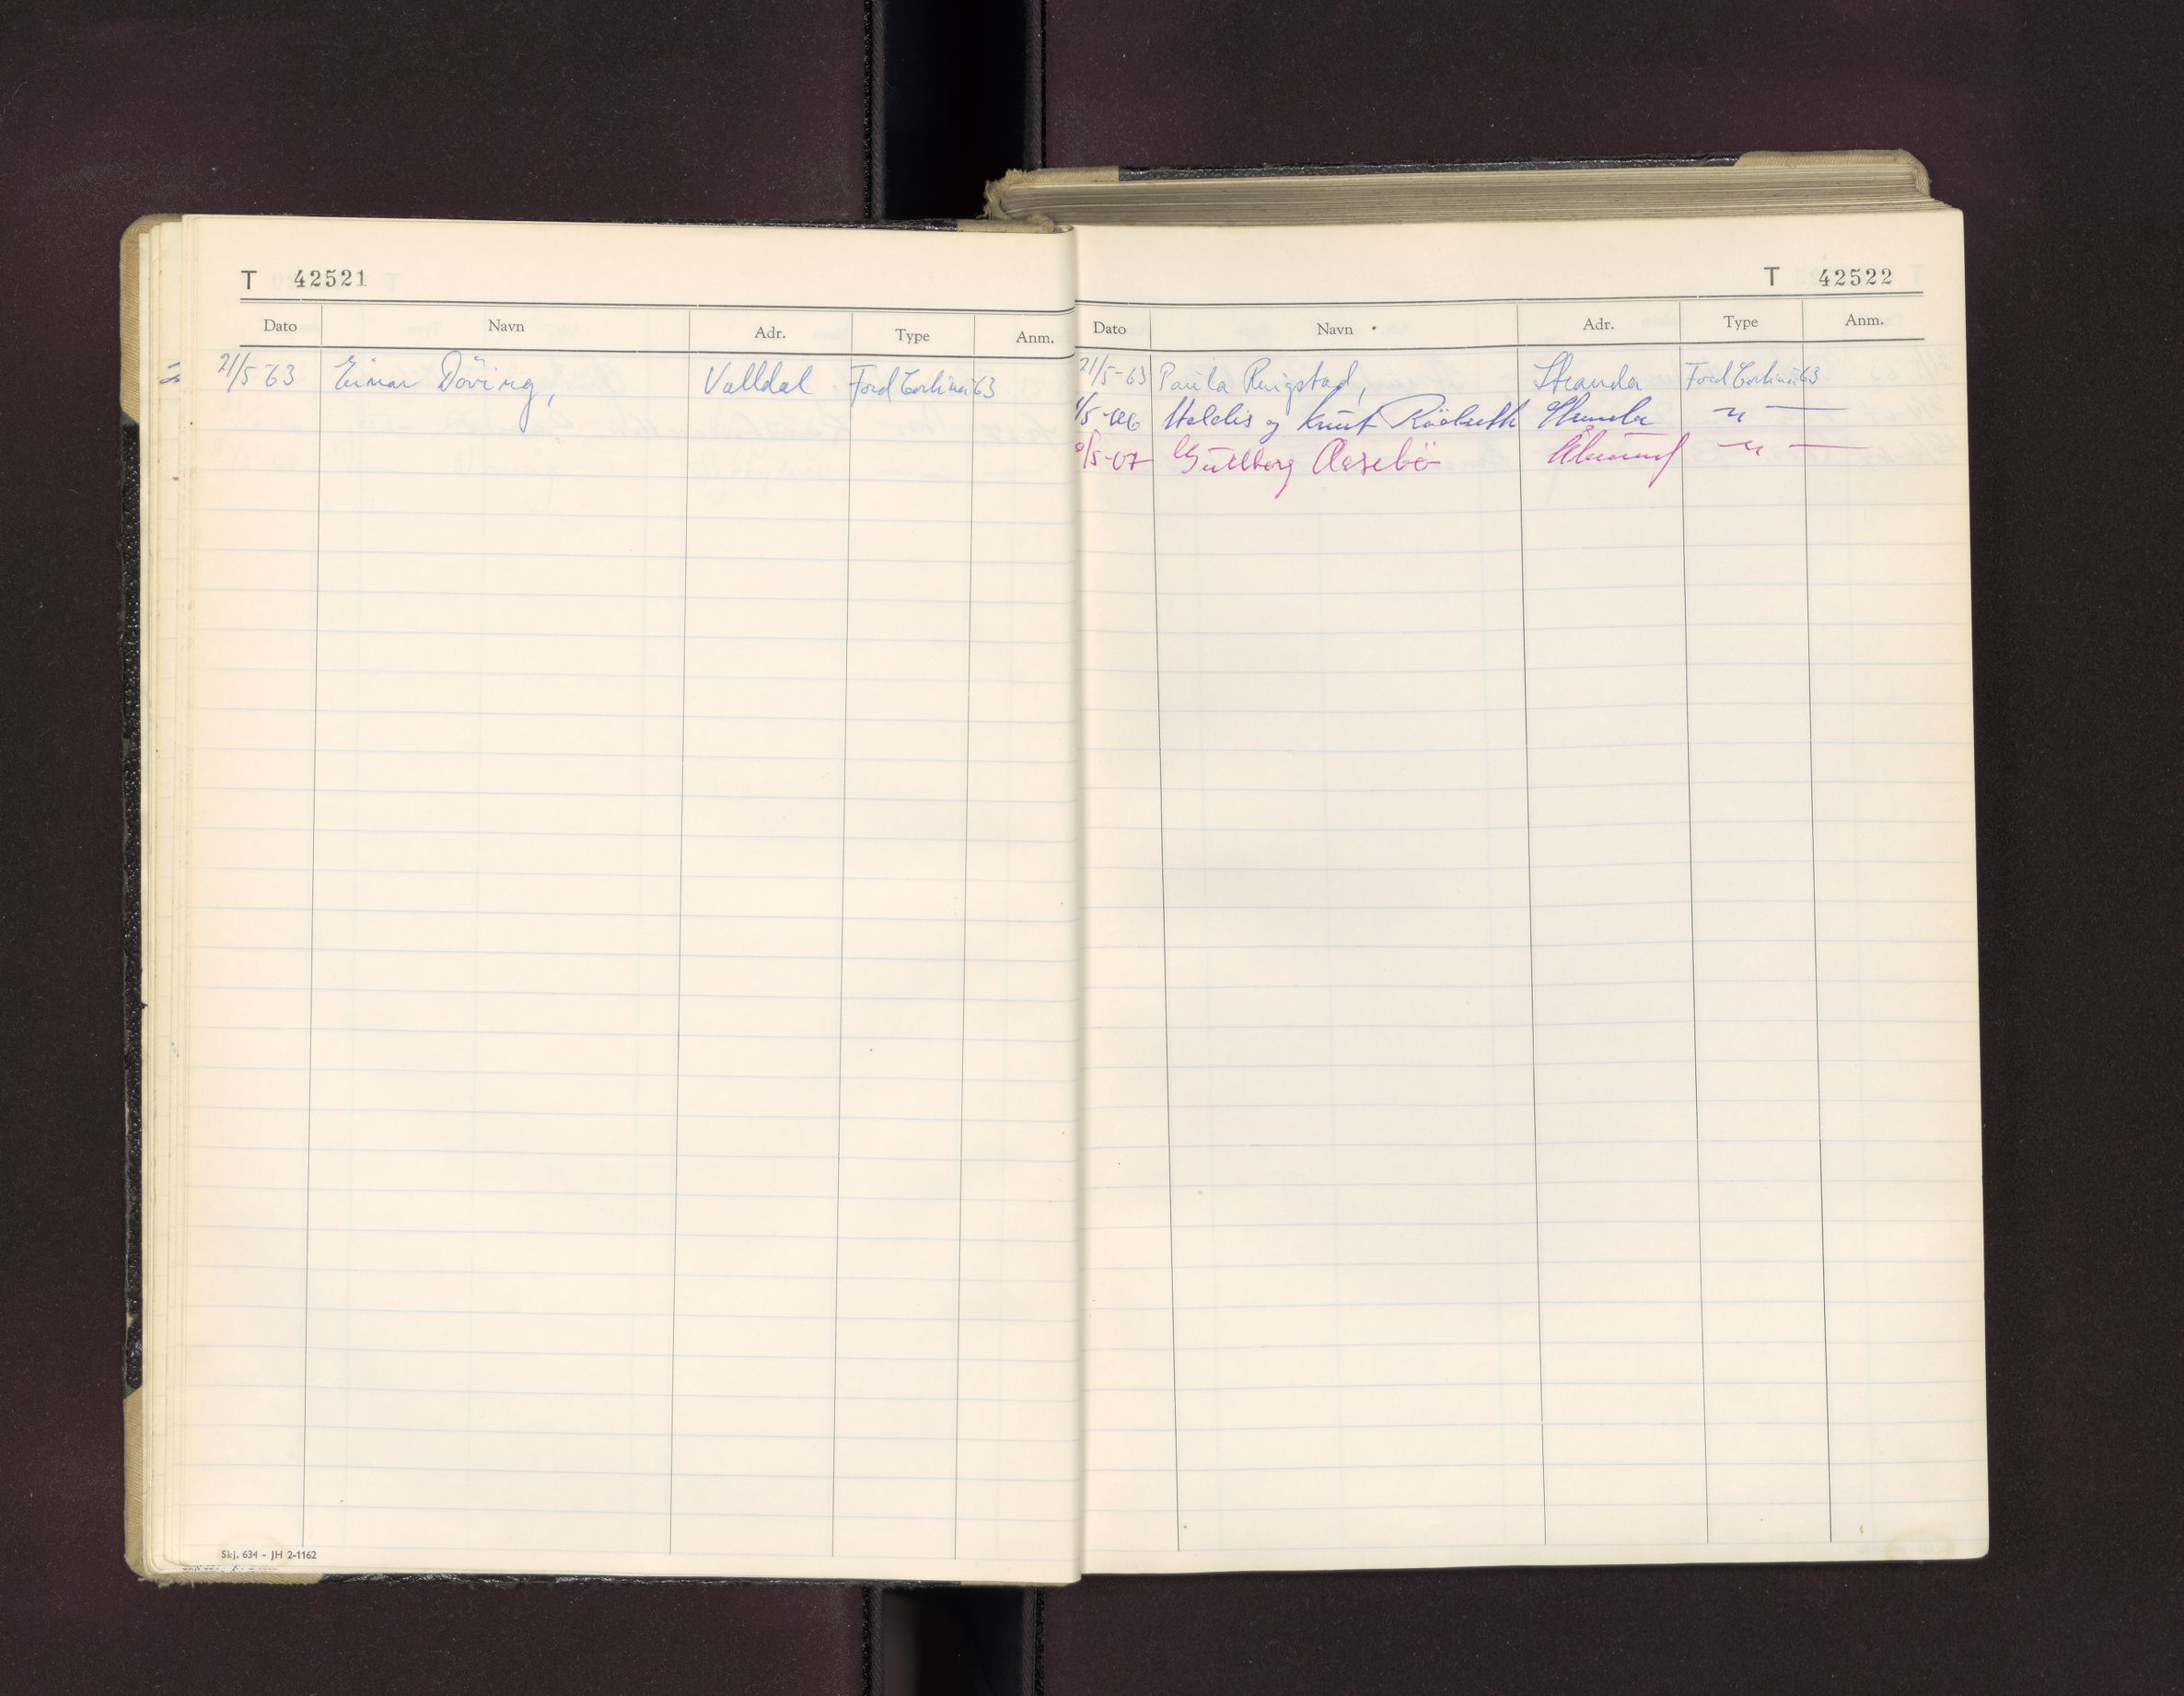 T 42521
Dato Navn Adr. Type Anm.
21/5 63 Einar Döving, Valldal Ford Cortina 63
Skj. 634 - JH 2-1162
T 42522
Dato Navn Adr. Type Anm.
21/5-63 Paula Ringstad, Stranda Ford Cortina 63
/5-66 Haldis og Knut Rödseth Stranda — " —
/5-67 Gullborg Aasebö Ålesund — " —